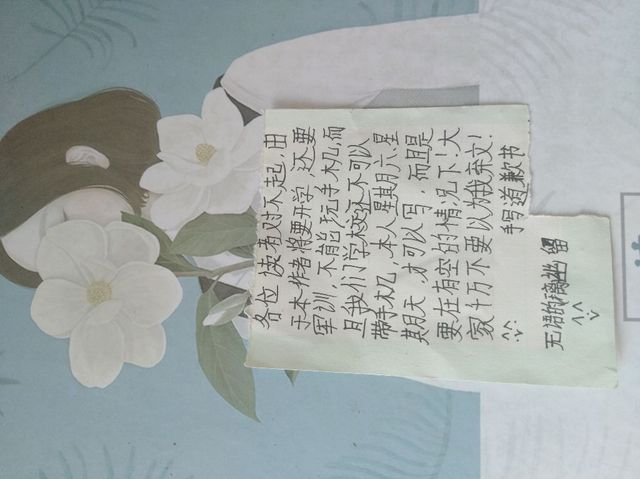 各位读者对不起,由
于本作者将要开学,还要
军训,不能玩手机,而
且我们学校还不可以
带手机,本人星期六星
期天,才可以写,而且是
要在有空的情况下!大
家千万不要以为我弃文!
手写道歉书
无语的璃坐 留